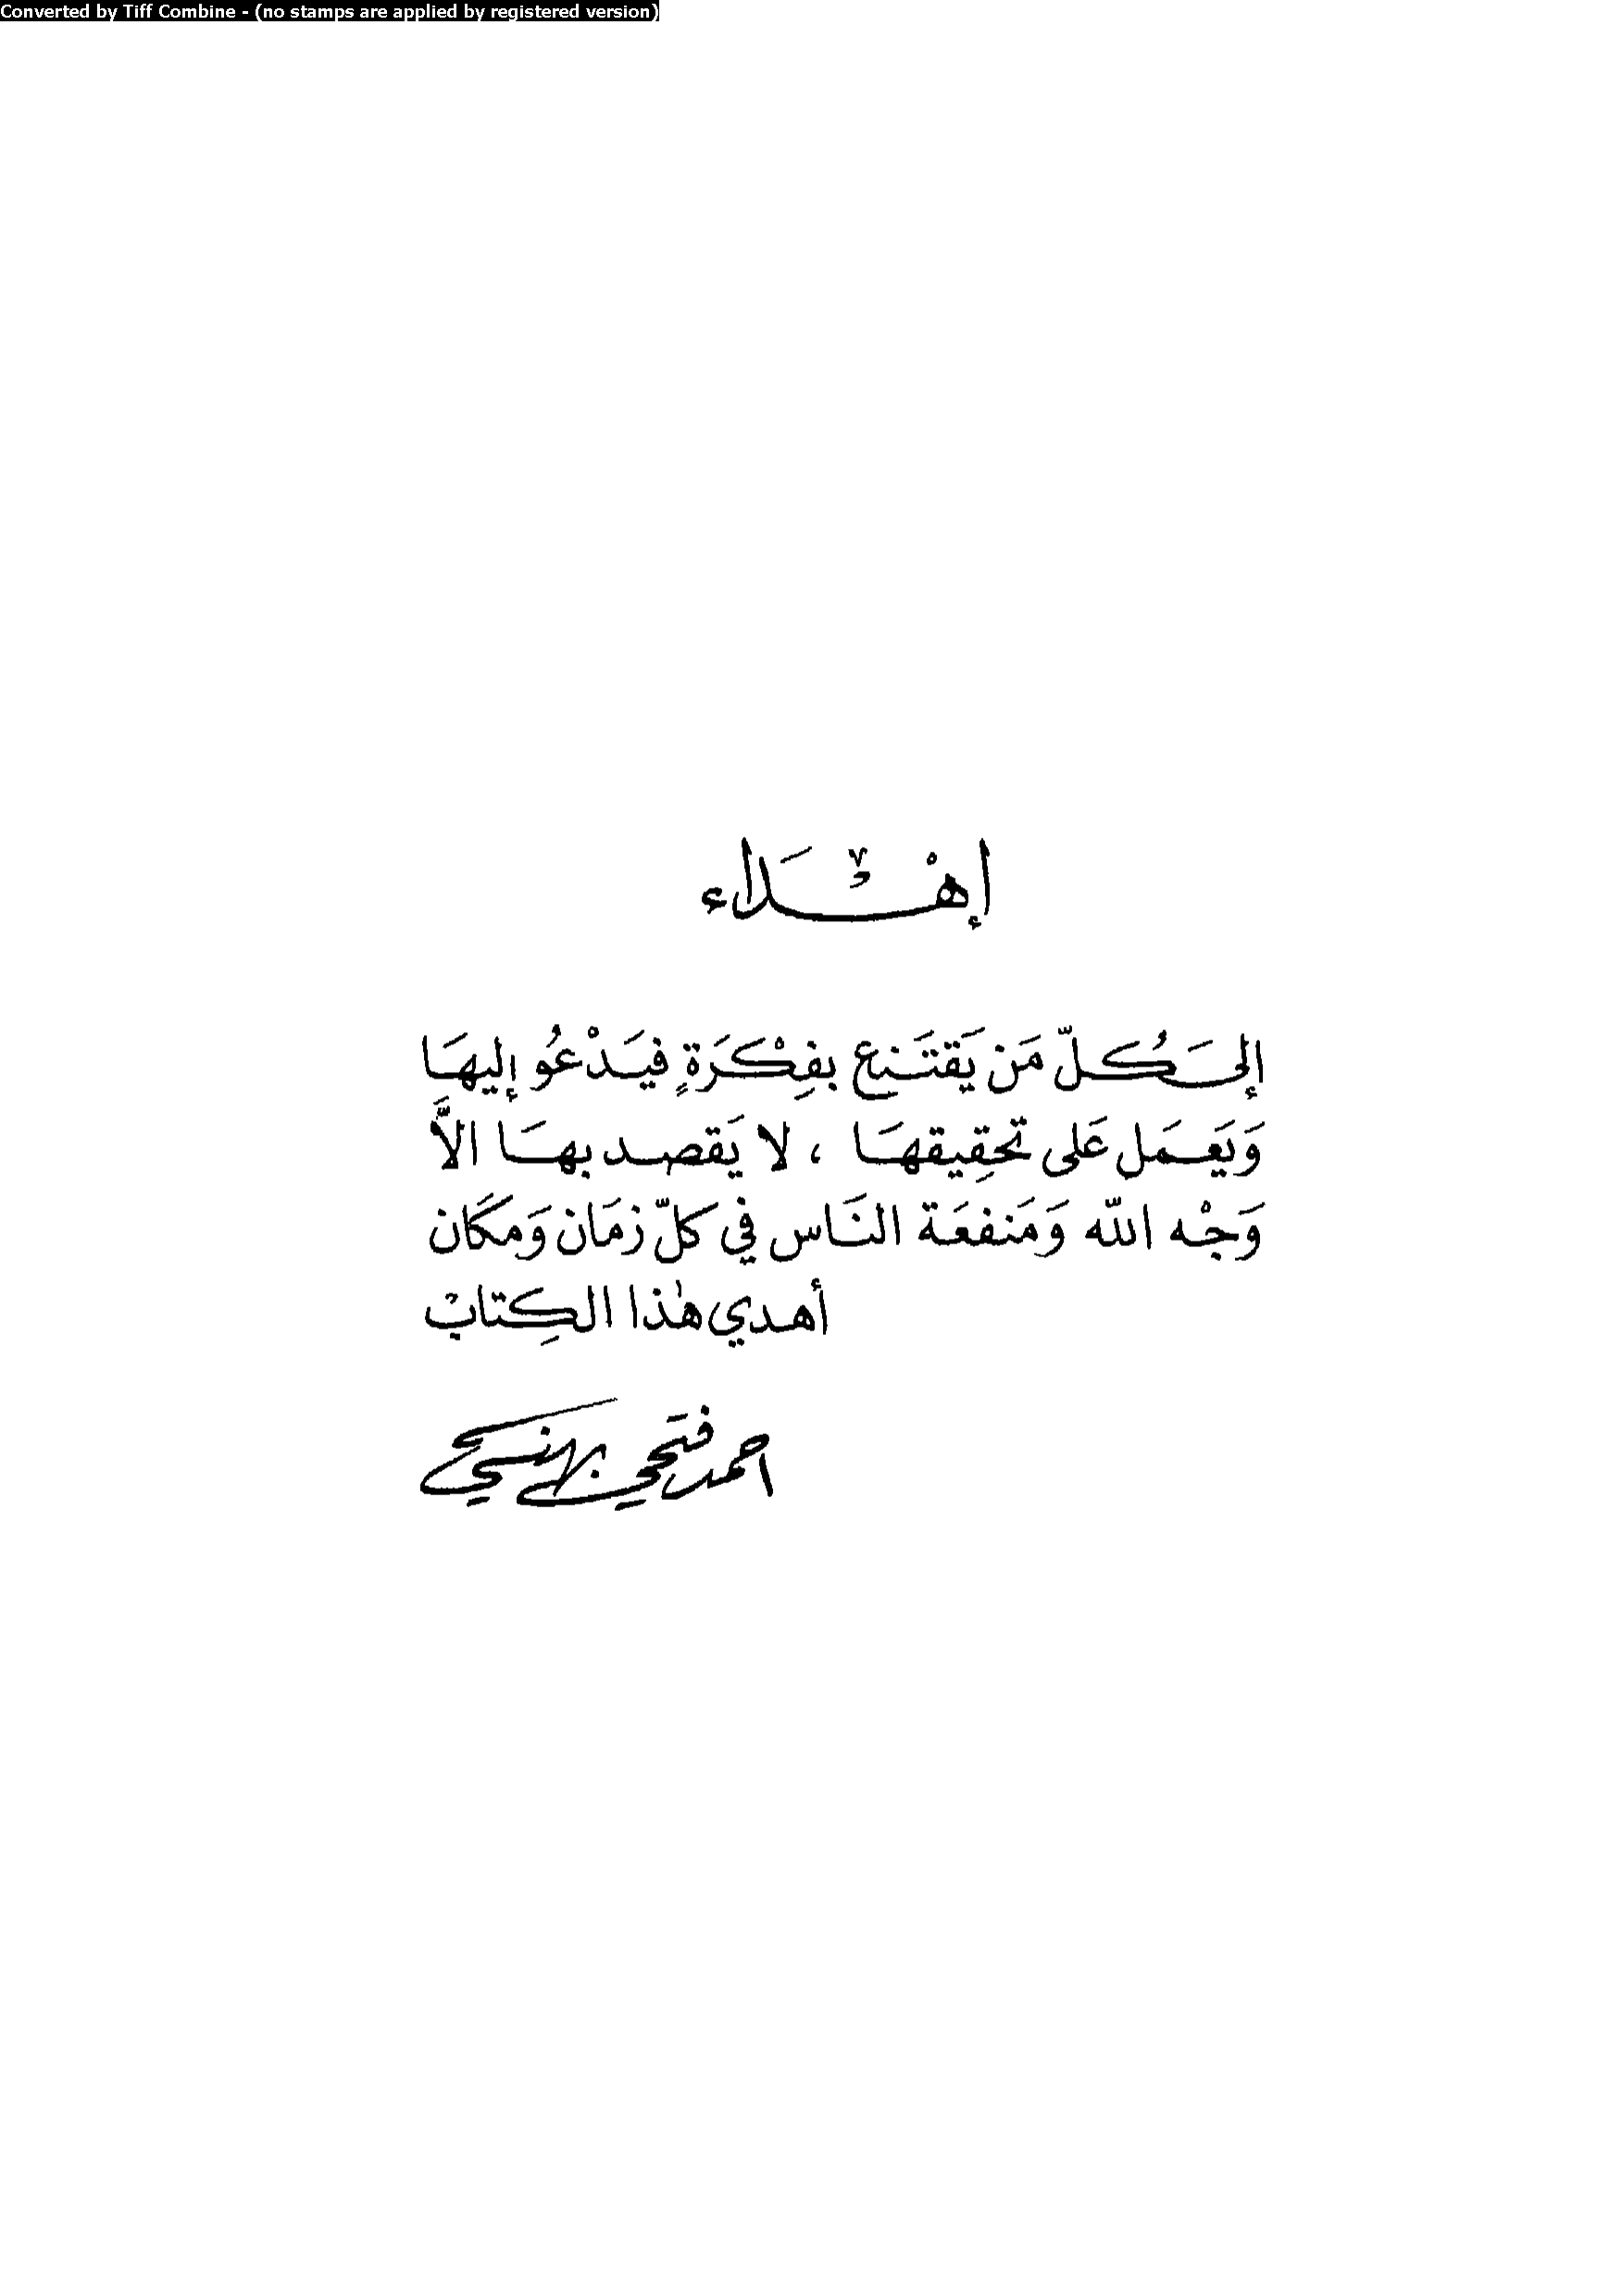 Converted by Tiff Combine - (no stamps are applied by registered version)
إهْدَاء
إلىَ كُلّ مَن يَقتَنِع بفِكْرَةٍ فيَدْعُو إليهَا
وَيَعمَل عَلى تحقِيقهَا ، لا يَقصد بهَا الاَّ
وَجْه الله وَمَنفعَة النَاس في كلّ زمَان وَمِكَان
أهدي هٰذا الكِتابْ
احمد فتحي بهنسي